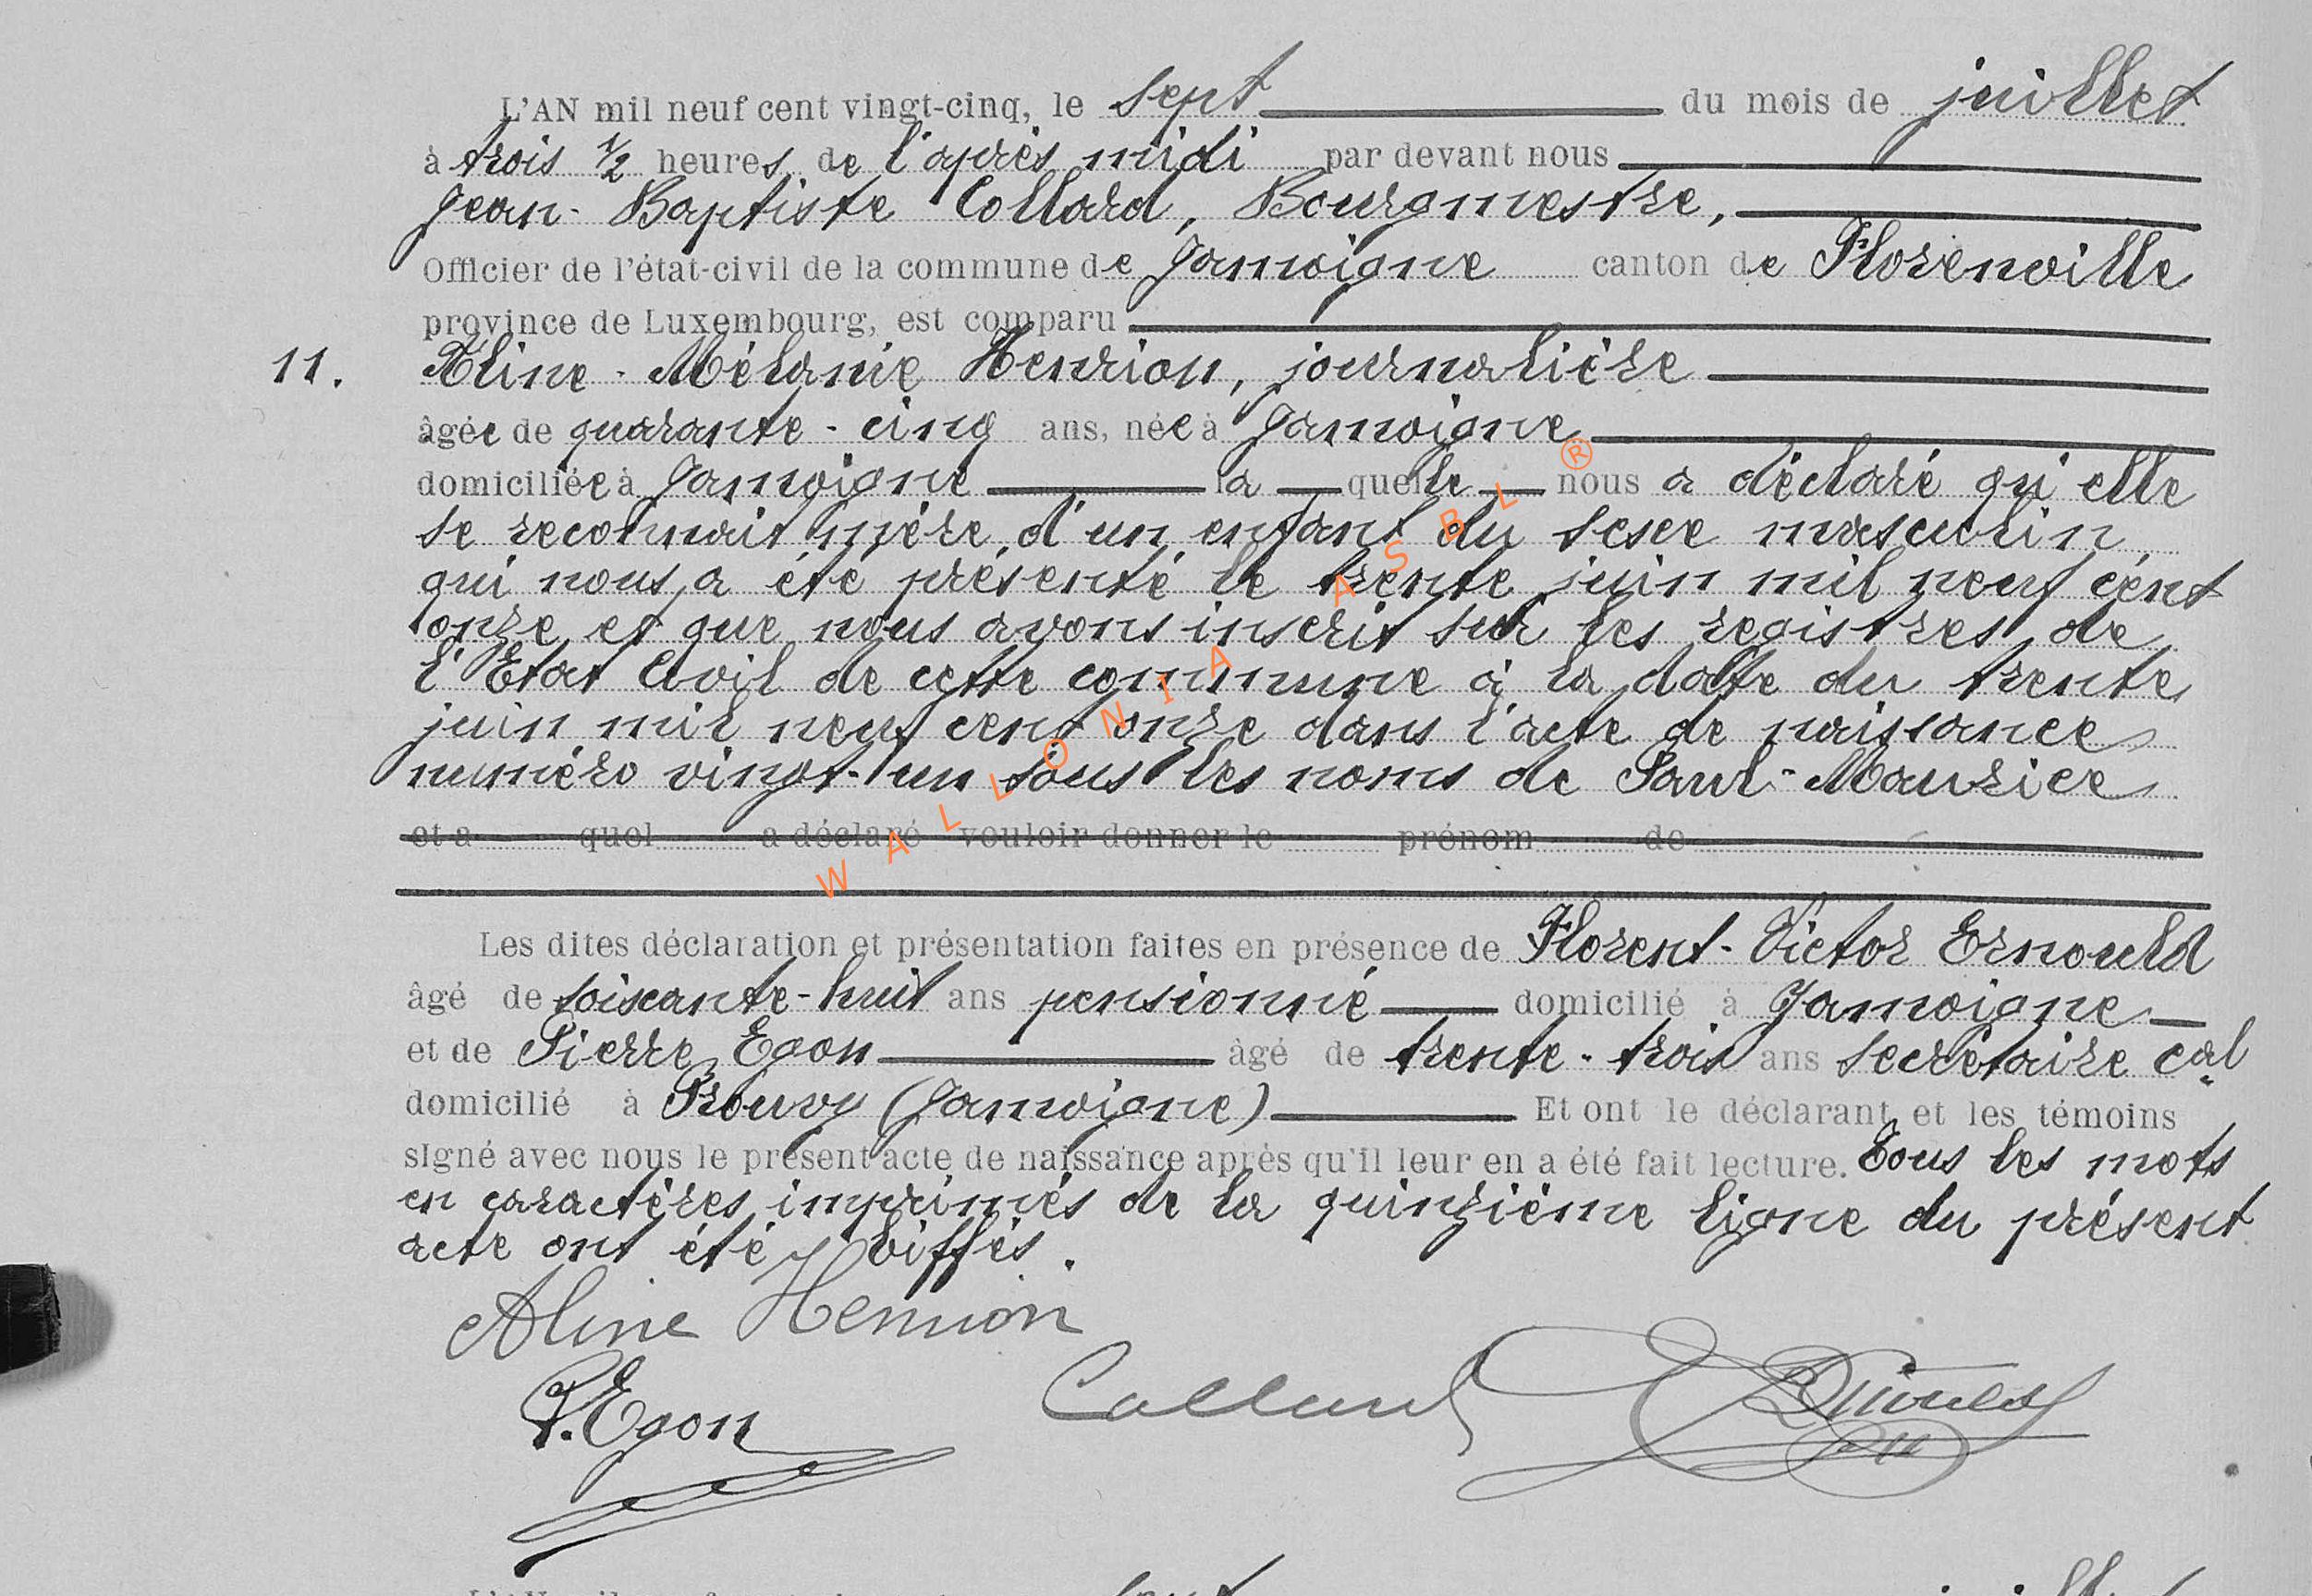 L'AN mil neuf cent vingt-cinq, le sept du mois de juillet
à trois 1/2 heures de l'après midi par devant nous
Jean-Baptiste Collard, Bourgmestre,
Officier de l'état-civil de la commune de Jamoigne canton de Florenville
province de Luxembourg, est comparu
11. Aline-Mélanie Henrion, journalière
âgée de quarante-cinq ans, née à Jamoigne
domiciliée à Jamoigne la quelle nous a déclaré qu'elle
se reconnait mère d'un enfant du sexe masculin
qui nous a été présenté le trente juin mil neuf cent
onze et que nous avons inscrit sur les registres de
l'Etat Civil de cette commune à la date du trente
juin mil neuf cent onze dans l'acte de naissance
numéro vingt-un sous les noms de Paul-Maurice
et a quel a déclaré vouloir donner le prénom de
Les dites déclaration et présentation faites en présence de Florent-Victor Ernould
âgé de soixante-huit ans pensionné domicilié à Jamoigne
et de Pierre Egon âgé de trente-trois ans secrétaire cal
domicilié à Prouvy (Jamoigne) Et ont le déclarant et les témoins
signé avec nous le présent acte de naissance après qu'il leur en a été fait lecture. Tous les mots
en caractères imprimés de la quinzième ligne du présent
acte ont été biffés.
Aline Henrion
P. Egon Collard
WALLONIA ASBL ®